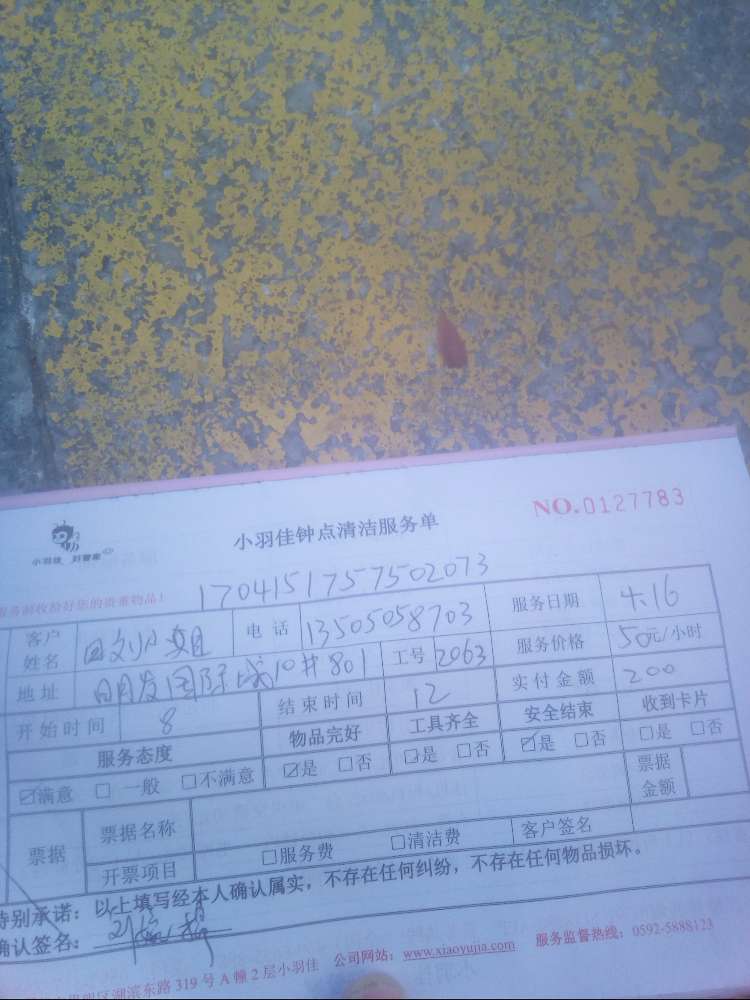 小羽佳 好管家
小羽佳钟点清洁服务单
NO.0127783
服务前收拾好您的贵重物品！
1704151757502073
客户姓名 电话 13505058703 服务日期 4.16
地址 国际城10#801 工号 2063 服务价格 50元/小时
开始时间 8 结束时间 12 实付金额 200
服务态度 物品完好 工具齐全 安全结束 收到卡片
☑满意 □一般 □不满意 ☑是 □否 ☑是 □否 ☑是 □否 □是 □否
票据 票据名称 票据金额
开票项目 □服务费 □清洁费 客户签名
特别承诺：以上填写经本人确认属实，不存在任何纠纷，不存在任何物品损坏。
确认签名：
湖滨东路319号A幢2层小羽佳 公司网站：www.xiaoyujia.com 服务监督热线：0592-5888123